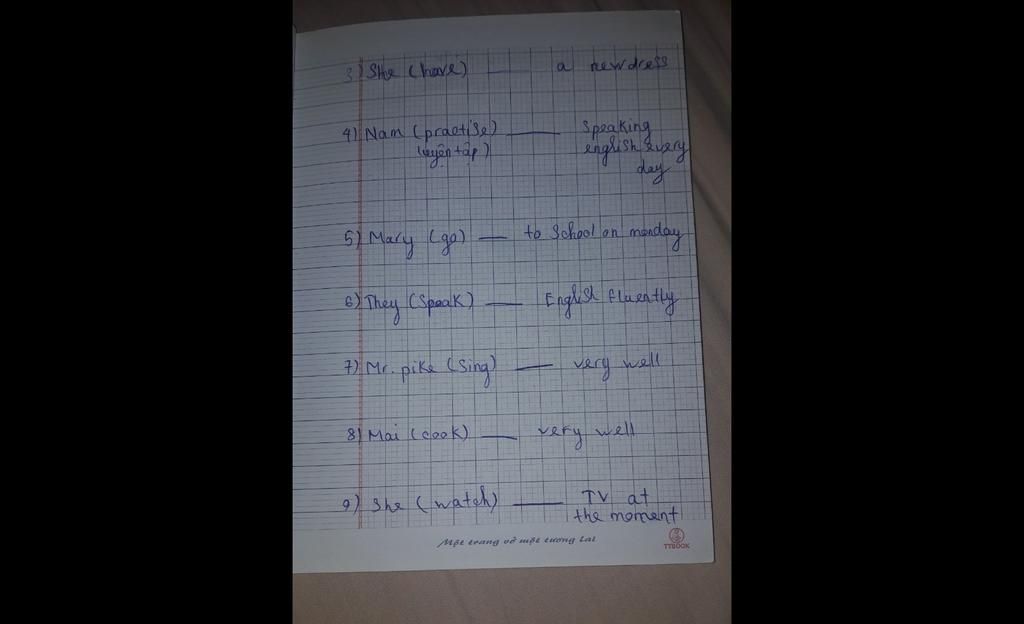 3) She (have) ___ a new dress
4) Nam (practise) ___ Speaking
(luyện tập) english every
day
5) Mary (go) ___ to School on monday
6) They (Speak) ___ English fluently
7) Mr. pike (Sing) ___ very well
8) Mai (cook) ___ very well
9) She (watch) ___ TV at
the moment
Một trang vở một tương lai
TTBOOK